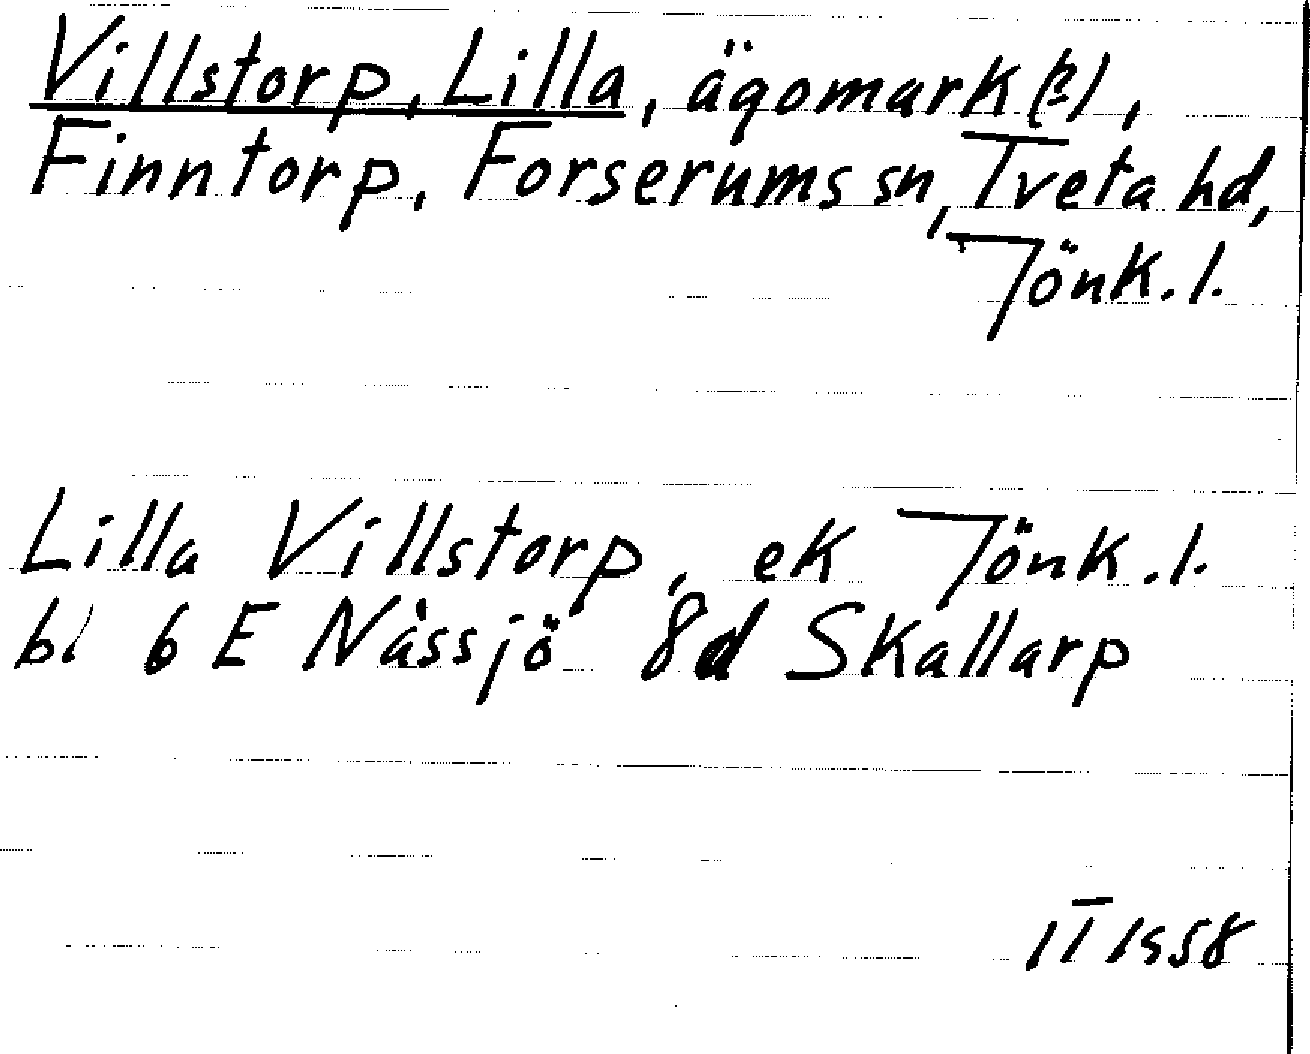 Villstorp, Lilla, ägomark (?),
Finntorp, Forserums sn, Tveta hd,
Jönk. l.
Lilla Villstorp, ek Jönk. l.
bl 6 E Nässjö 8d Skallarp
IT 1958